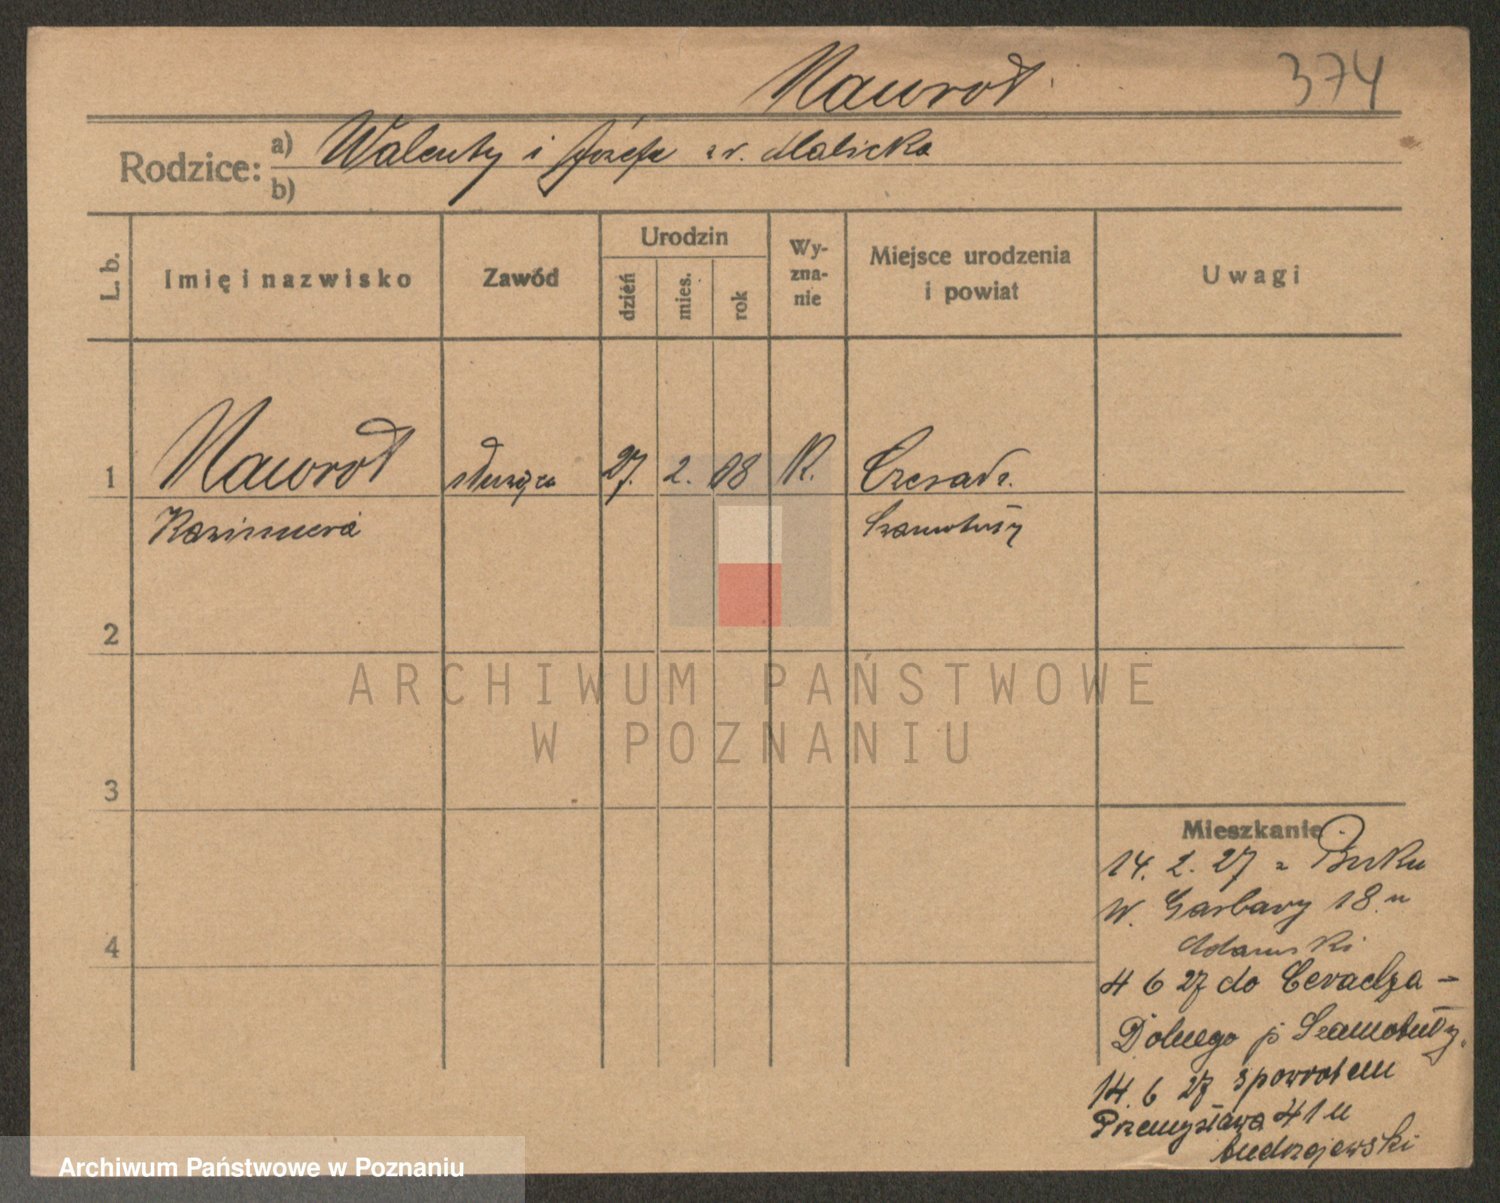 Nawrot
374
Rodzice:
a) Walenty i Józefa z d. Malicka
b)
L. b.
Imię i nazwisko
Zawód
Urodzin
dzień
mies.
rok
Wy-
zna-
nie
Miejsce urodzenia
i powiat
Uwagi
1
Nawrot
służąca
27. 2. 08
K.
Kazimiera
Szamotuły
2
3
4
Mieszkanie
14. 2. 27 z Buku
W. Garbary 18 u
Adamski
4 6 27 do Ceradza-
Dolnego p Szamotuły.
14. 6 27 spowrotem
Przemysława 41 u
Andrzejewski
ARCHIWUM PAŃSTWOWE
W POZNANIU
Archiwum Państwowe w Poznaniu